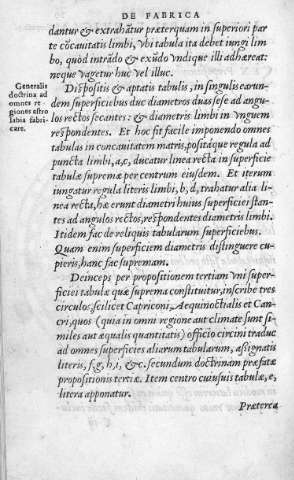 DE FABRICA
dantur & extrahãtur præterquam in superiori par
te cõcauitatis limbi, vbi tabula ita debet iungi lim
bo, quod intrãdo & exeũdo vndique illi adhæreat:
neque vagetur huc vel illuc.
Generalis
doctrina ad
omnes re-
giones astro
labia fabri-
care.
Dispositis & aptatis tabulis, in singulis earun-
dem superficiebus duc diametros duas sese ad angu-
los rectos secantes: & diametris limbi in vnguem
respondentes. Et hoc fit facile imponendo omnes
tabulas in concauitatem matris, positáque regula ad
puncta limbi, a, c, ducatur linea recta in superficie
tabulæ supremæ per centrum eiusdem. Et iterum
iungatur regula literis limbi, b, d, trahatur alia li-
nea recta, hæ erunt diametri huius superficiei stan-
tes ad angulos rectos, respondentes diametris limbi.
Itidem fac de reliquis tabularum superficiebus.
Quam enim superficiem diametris distinguere cu-
pieris, hanc fac supremam.
Deinceps per propositionem tertiam vni super-
ficiei tabulæ quæ suprema constituitur, inscribe tres
circulos, scilicet Capriconi, Aequinoctialis et Can-
cri, quos (quia in omni regione aut climate sunt si-
miles aut æqualis quantitatis) officio circini traduc
ad omnes superficies aliarum tabularum, assignatis
literis, f, g, h, i, &c. secundum doctrinam præfatæ
propositionis tertiæ. Item centro cuiusuis tabulæ, e,
litera apponatur.
Præterea